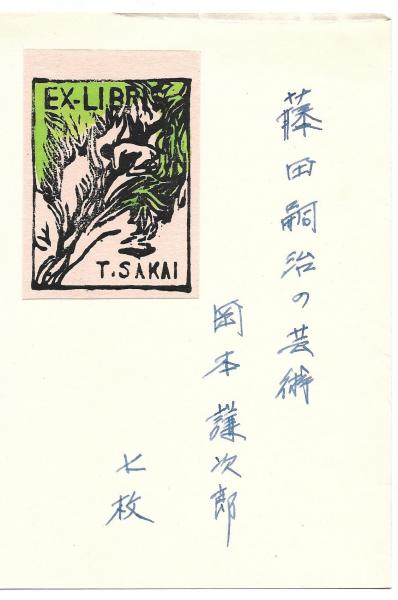 EX-LIBRIS
T. SAKAI
藤田嗣治の芸術
岡本謙次郎
七枚